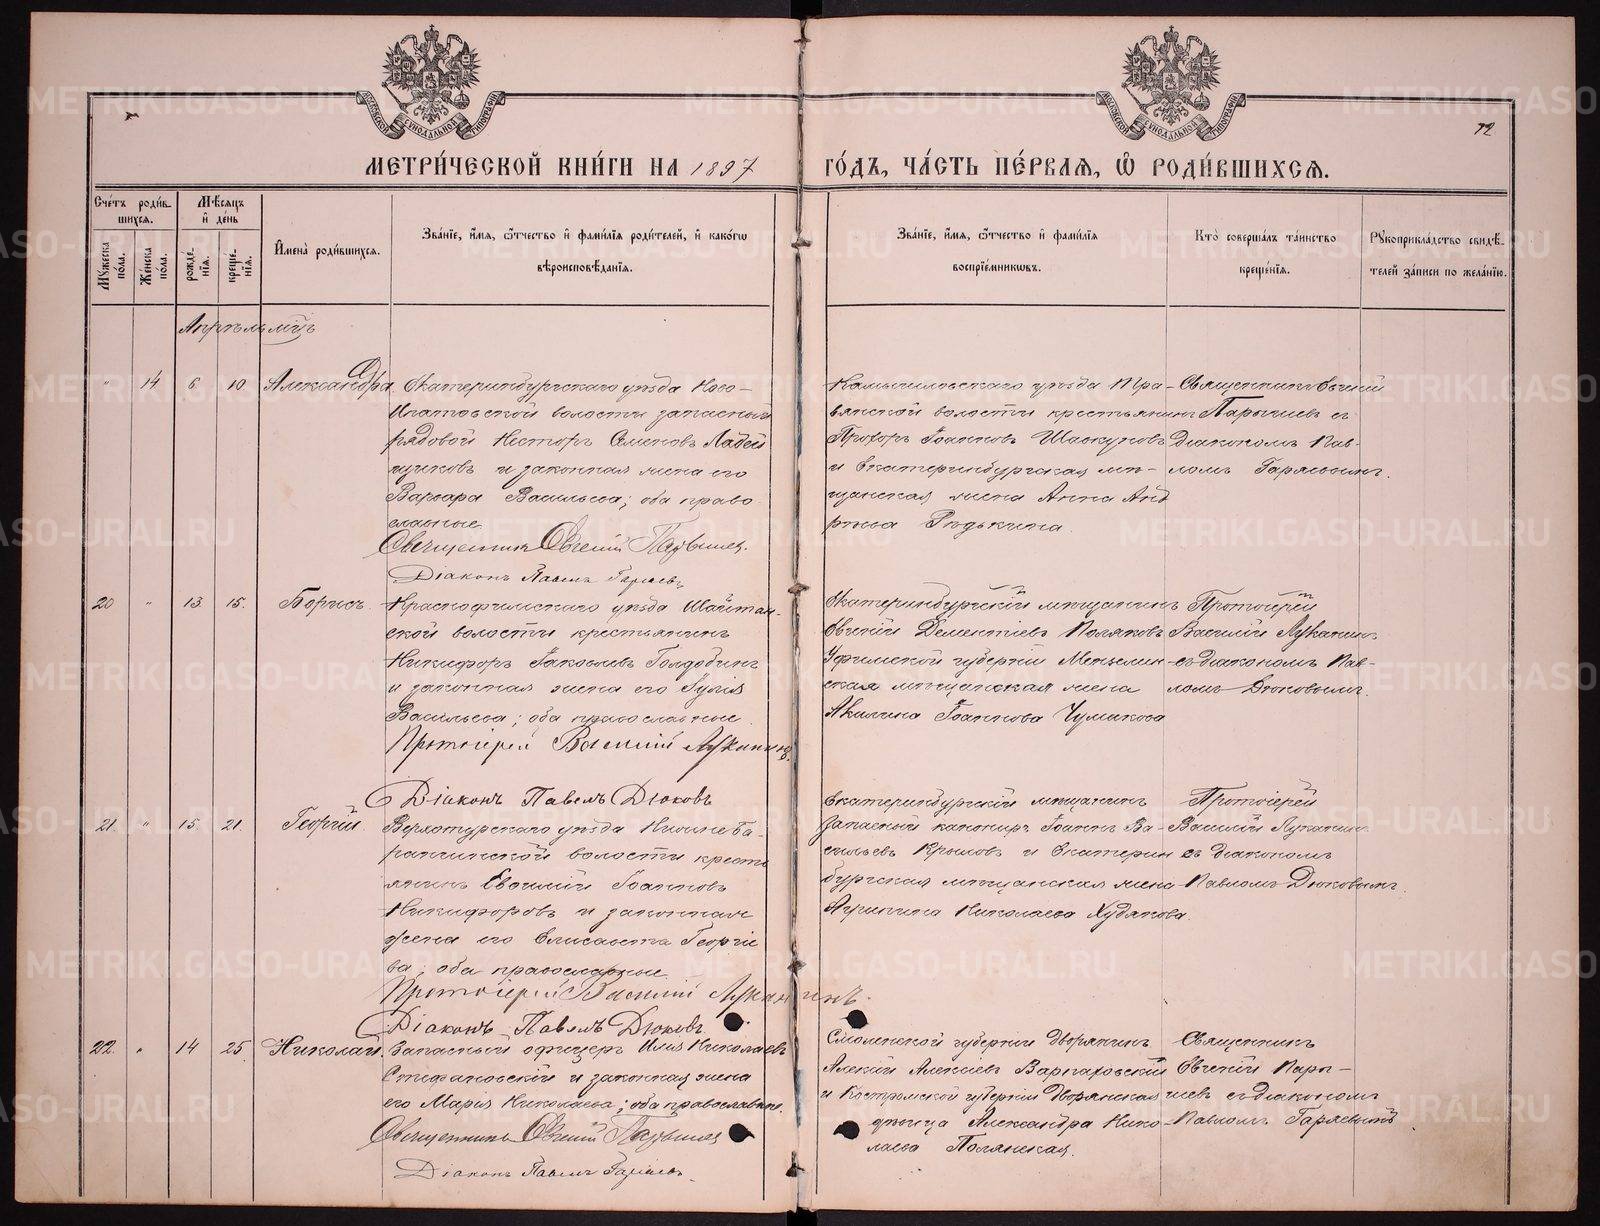 МОСКОВСКОЙ СѴНОДАЛЬНОЙ ТИПОГРАФІИ
МОСКОВСКОЙ СѴНОДАЛЬНОЙ ТИПОГРАФІИ
72
МЕТРИ́ЧЕСКОЙ КНИ́ГИ НА 1897 ГО́ДЪ, ЧА́СТЬ ПЕ́РВАЯ, Ѡ҆ РОДИ́ВШИХСЯ.
Сче́тъ роди́вшихся.
Мꙋ́жеска по́ла.
Же́нска по́ла.
Мѣ́сяцъ и҆ де́нь
рожде́нїя.
креще́нїя.
И҆мена̀ роди́вшихся.
Зва́нїе, и҆́мя, ѻ҆́тчество и҆ фами́лїя роди́телей, и҆ како́гѡ вѣроисповѣ́данїя.
Зва́нїе, и҆́мя, ѻ҆́тчество и҆ фами́лїя воспрїе́мниковъ.
Кто̀ соверша́лъ та́инство креще́нїя.
Рꙋкоприкла́дство свидѣ́телей за́писи по жела́нїю.
Апрѣль мцъ
" 14 6 10 Александра
Екатеринбургскаго уѣзда Ново-
Ипатовской волости запасный
рядовой Несторъ Семеновъ Лабей
щиковъ и законная жена его
Варвара Васильева; оба право
славные
Священникъ Евгеній Парышев.
Діаконъ Павелъ Гаряевъ
Камышловскаго уѣзда Тра-
вянской волости крестьянинъ
Прохоръ Іоанновъ
и Екатеринбургская мѣ-
щанская жена Анна Анд
рѣева Рѣдькина.
Священникъ Евгеній
Парышевъ съ
діакономъ Пав-
ломъ Гаряевымъ.
20 " 13. 15. Борисъ.
Красноуфимскаго уѣзда Шайтан-
ской волости крестьянинъ
Никифоръ Іаковлевъ Голдобинъ
и законная жена его Іулія
Васильева; оба православные.
Протоіерей Василій Луканинъ.
Діаконъ Павелъ Дюковъ
Екатеринбургскій мѣщанинъ
Евгеній Дементіевъ Поляковъ
Уфимской губерніи Мензелин-
ская мѣщанская жена
Акилина Іоаннова Чумакова
Протоіерей
Василій Луканинъ
съ діакономъ Пав-
ломъ Дюковымъ.
21. " 15. 21. Георгій.
Верхотурскаго уѣзда Нижне Ба-
ранчинской волости кресть
янинъ Евфимій Іоанновъ
Никифоровъ и законная
жена его Елисавета Георгіе
ва; оба православные
Протоіерей Василій Луканинъ.
Діаконъ Павелъ Дюковъ.
Екатеринбургскій мѣщанинъ
запасный канониръ Іоаннъ Ва-
сильевъ Крыловъ и Екатерин
бургская мѣщанская жена
Агрипина Николаева Худякова.
Протоіерей
Василій Луканинъ
съ діакономъ
Павломъ Дюковымъ.
22. " 14 25. Николай.
Запасный офицеръ Илія Николаевъ
Стефановскій и законная жена
его Марія Николаева; оба православные.
Священникъ Евгеній Парышев
Діаконъ Павелъ Гаряевъ.
Смоленской губерніи дворянинъ
Алексій Алексіевъ Варпаховскій
и Костромской губерніи дворянская
дѣвица Александра Нико-
лаева Полянская.
Священникъ
Евгеній Пары-
шевъ съ діакономъ
Павломъ Гаряевымъ
METRIKI.GASO-URAL.RU